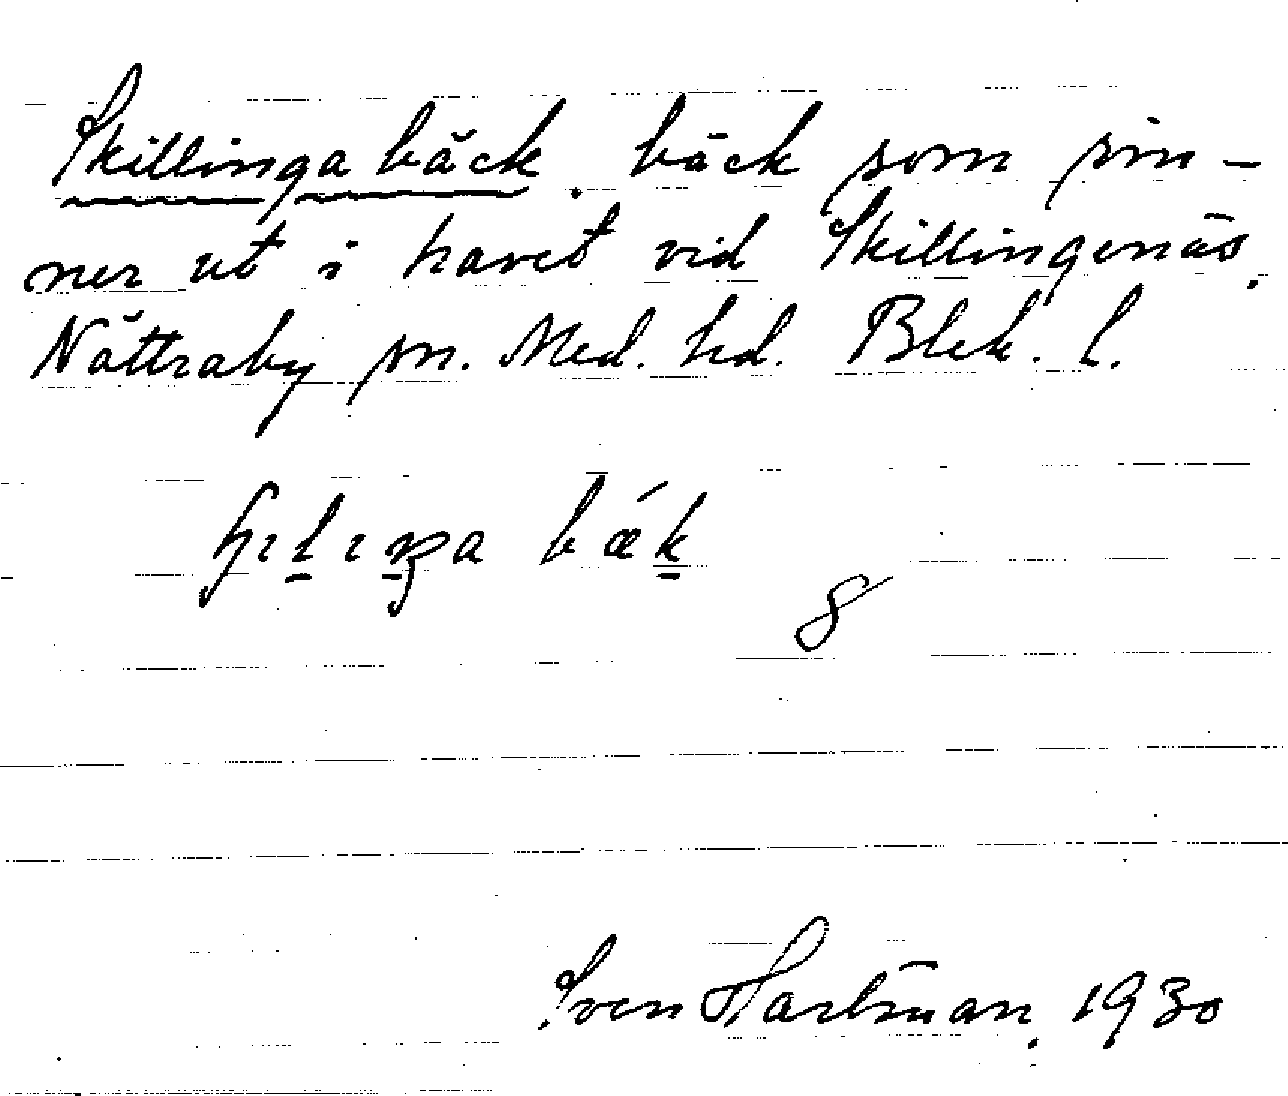 Skillinga bäck. bäck som rin-
ner ut i havet vid Skillingenäs,
Nättraby sn. Med. hd. Blek. l.
8
Sven Hartman, 1930